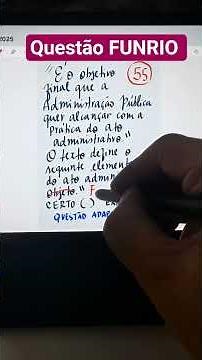 Questão FUNRIO
2025
"É o objetivo
55
final que a
Administração Pública
quer alcançar com a
prática do ato
administrativo."
O texto define o
seguinte elemento
do ato
objeto." F
CERTO ( )
QUESTÃO